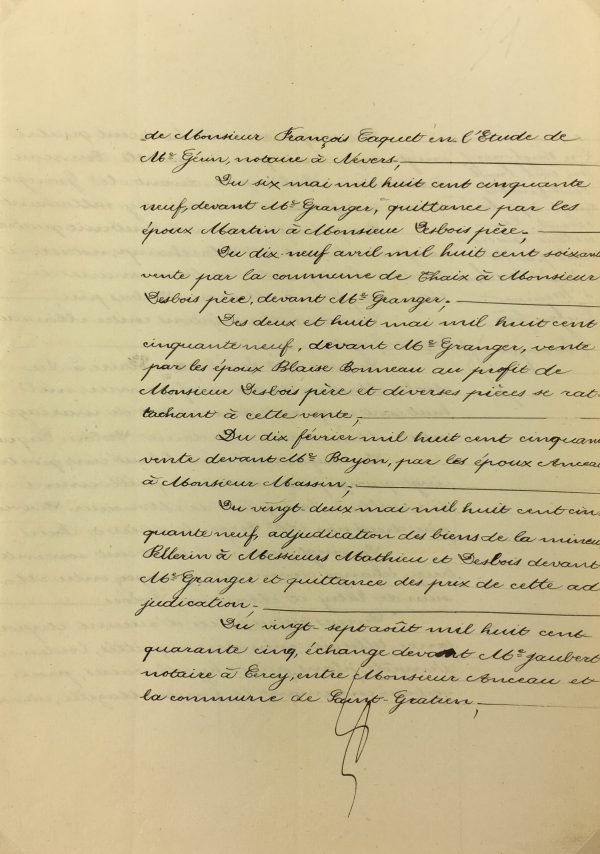 de Monsieur François Taquet en l'Etude de
Me Génin, notaire à Nevers,
Du six mai mil huit cent cinquante
neuf, devant Me Granger, quittance par les
époux Martin à Monsieur Desbois père;
Du dix-neuf avril mil huit cent soixante
vente par la commune de Thaix à Monsieur
Desbois père, devant Me Granger;
Des deux et huit mai mil huit cent
cinquante neuf, devant Me Granger, vente
par les époux Blaise Bonneau au profit de
Monsieur Desbois père et diverses pièces se rat-
tachant à cette vente;
Du dix février mil huit cent cinquante
vente devant Me Bayon, par les époux Anceau
à Monsieur Massin;
Du vingt-deux mai mil huit cent cin-
quante neuf, adjudication des biens de la mineure
Pellerin à Messieurs Mathieu et Desbois devant
Me Granger et quittance des prix de cette ad-
judication;
Du vingt-sept août mil huit cent
quarante cinq, échange devant Me Jaubert
notaire à Cercy, entre Monsieur Anceau et
la commune de Saint-Gratien;